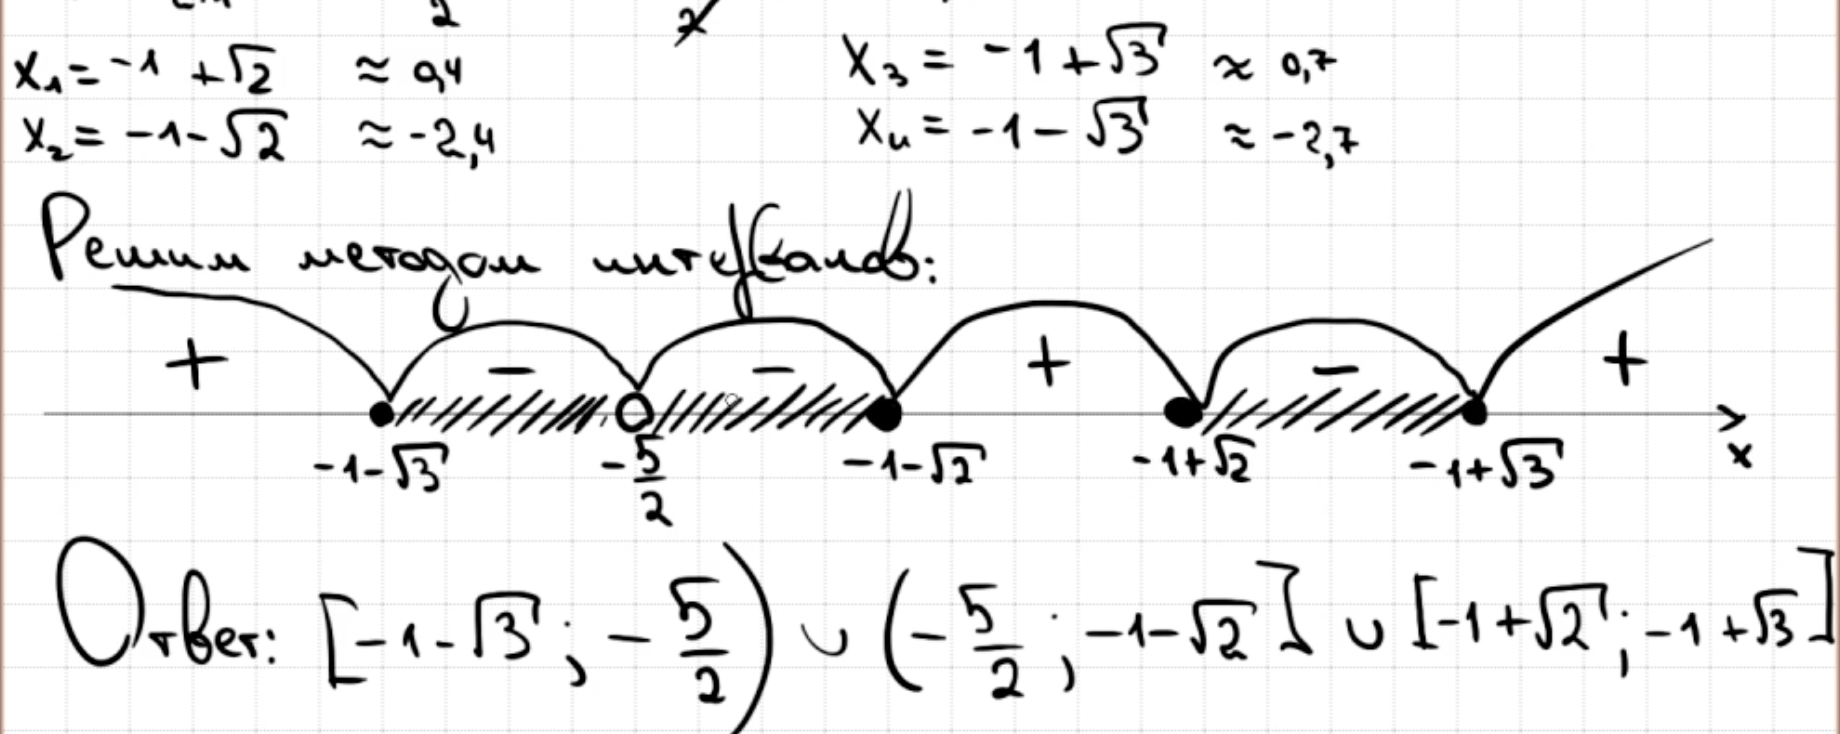 x₁ = -1 + √2 ≈ 0,4
x₂ = -1 - √2 ≈ -2,4
x₃ = -1 + √3 ≈ 0,7
x₄ = -1 - √3 ≈ -2,7
Решим методом интервалов:
+ - - + - +
-1-√3 -5/2 -1-√2 -1+√2 -1+√3 x
Ответ: [-1-√3; -5/2) ∪ (-5/2; -1-√2] ∪ [-1+√2; -1+√3]